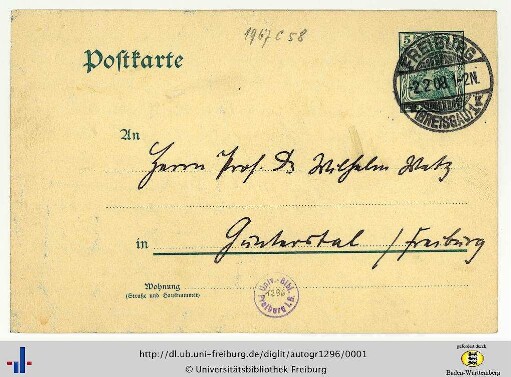 1967 C 58
Postkarte
FREIBURG
-2.2.08. 1-2N.
(BREISGAU)
An
Herrn Prof. Dr Wilhelm Wetz
in Günterstal / Freiburg
Wohnung
(Straße und Hausnummer)
Univ.-Bibl.
1296
Freiburg i. B.
http://dl.ub.uni-freiburg.de/diglit/autogr1296/0001
© Universitätsbibliothek Freiburg
gefördert durch
Baden-Württemberg